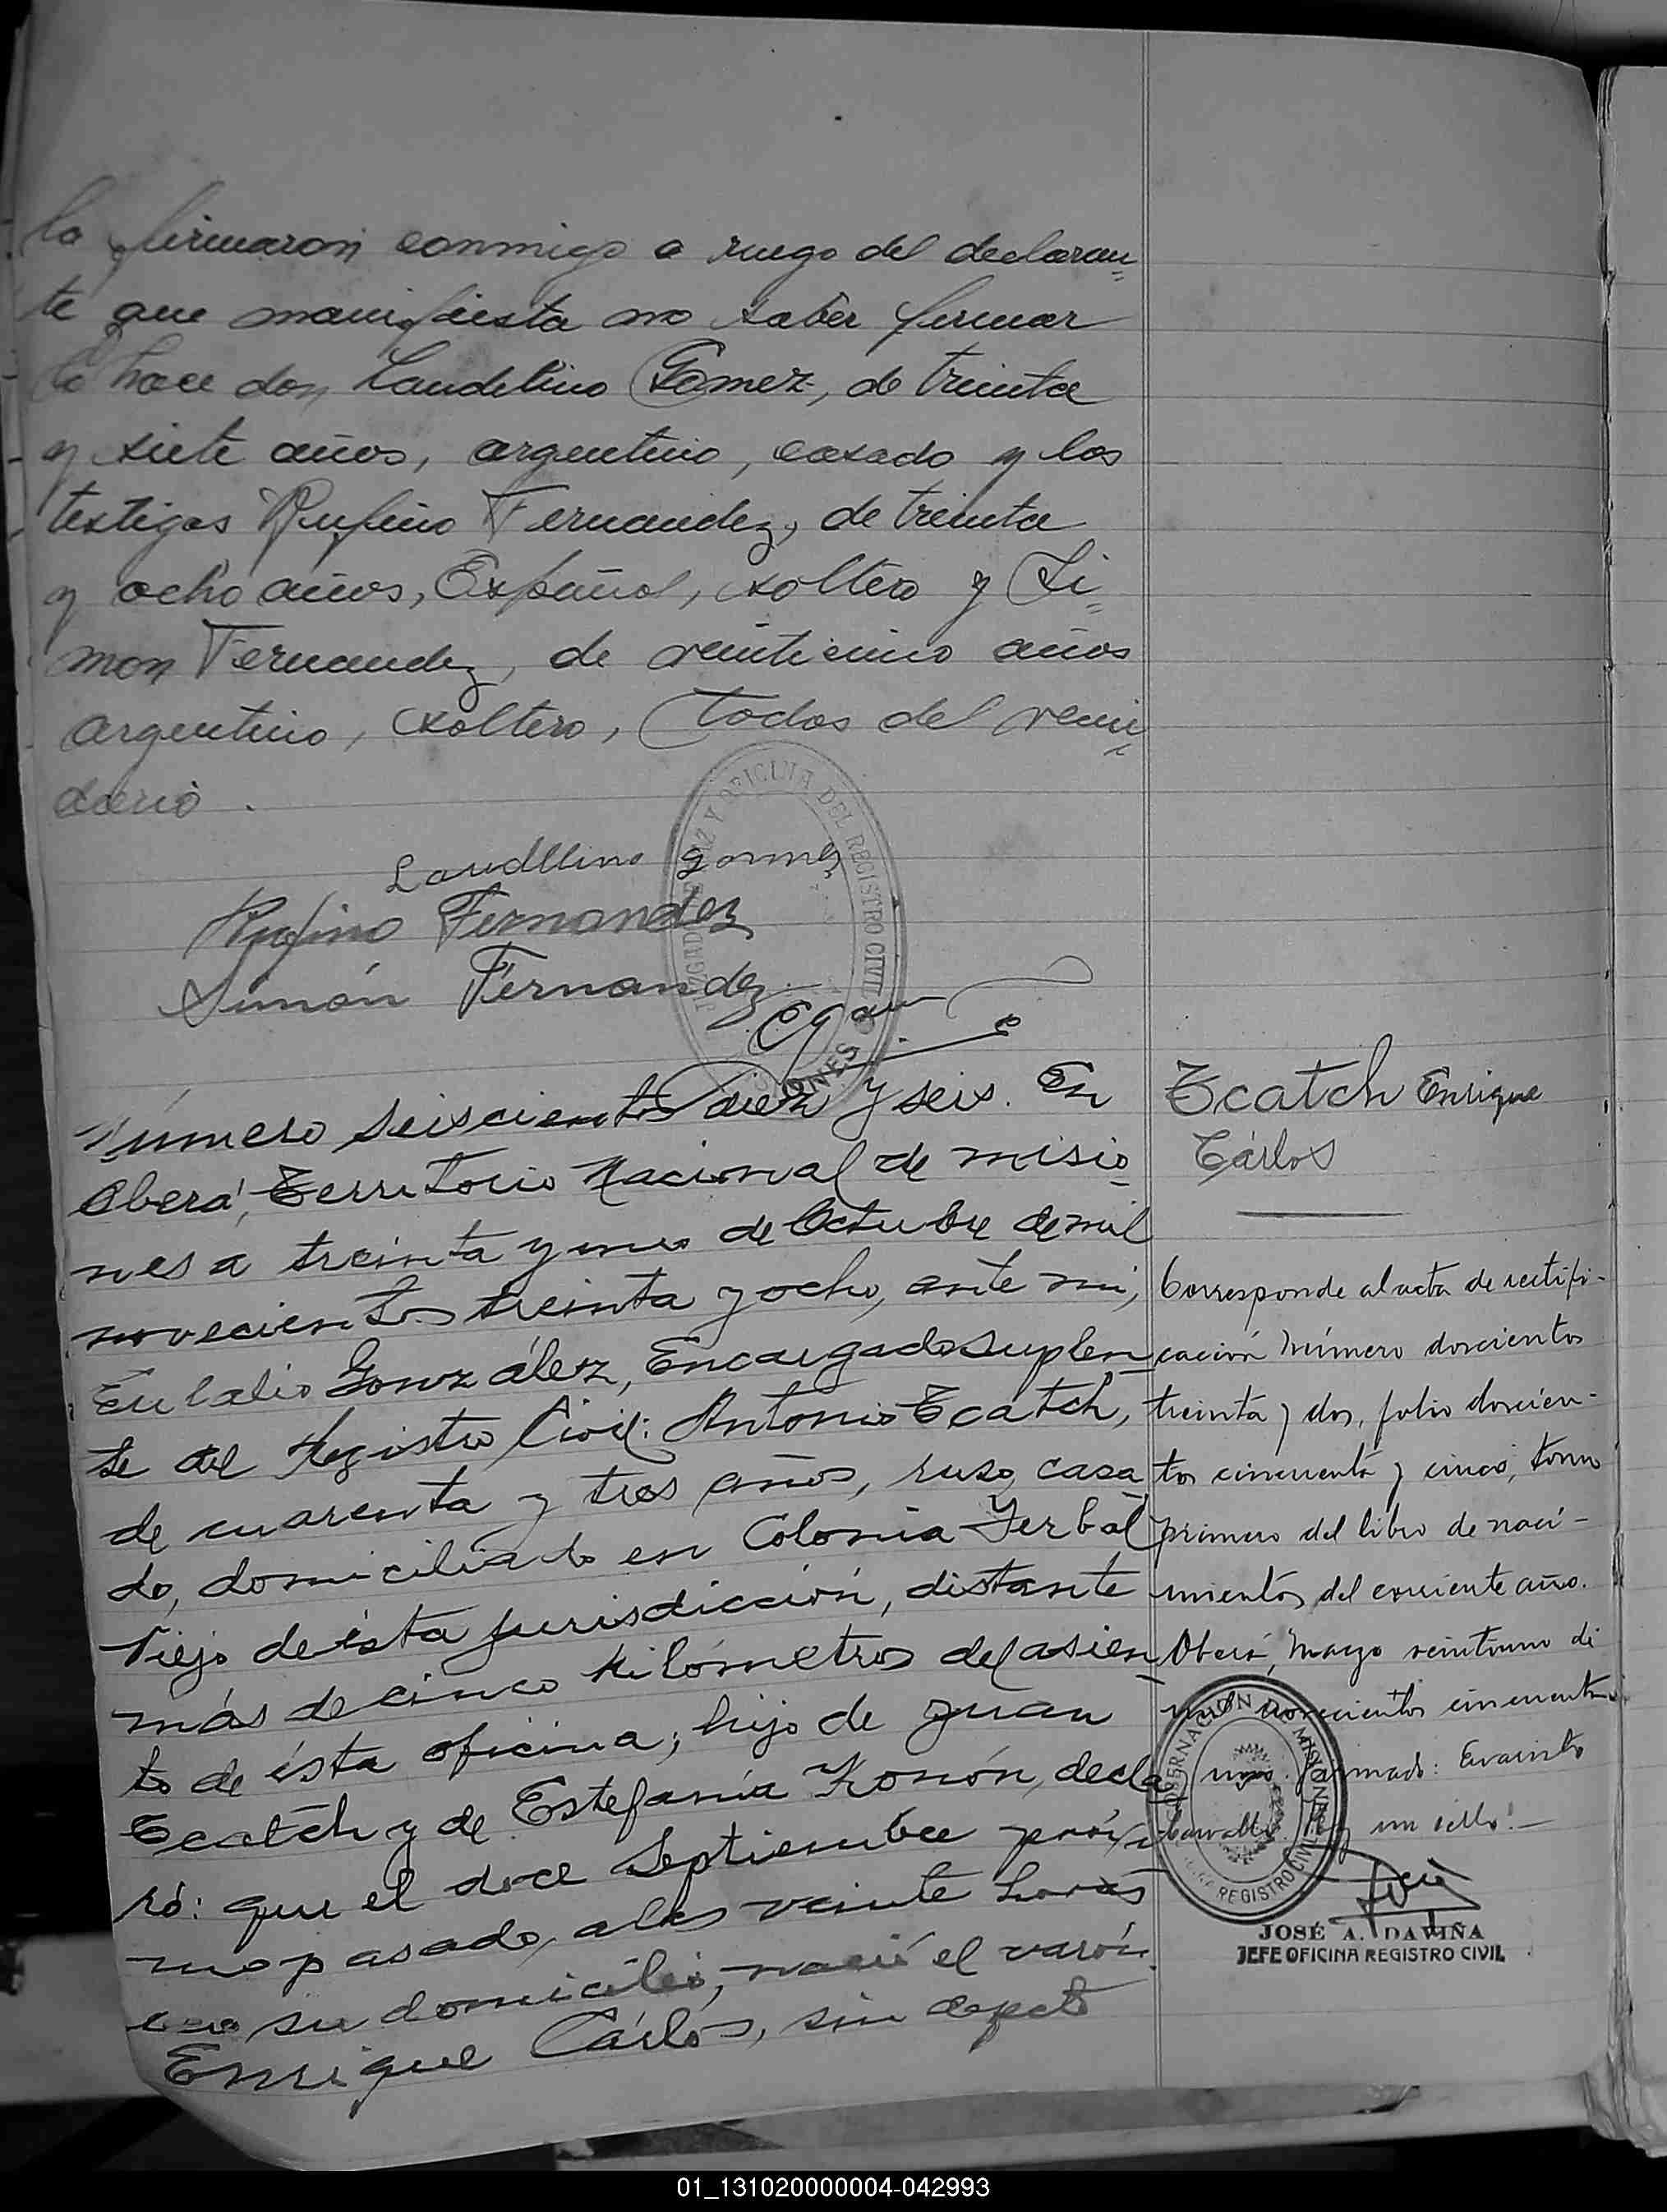 la firmaron conmigo a ruego del declaran=
te que manifiesta no saber firmar
lo hace don Laudelino Gomez, de treinta
y siete años, argentino, casado y los
testigos Rufino Fernandez, de treinta
y ocho años, Español, soltero y Si=
mon Fernandez, de veinticinco años
argentino, soltero, todos del vecin=
dario.
JUZGADO DE PAZ Y OFICINA DEL REGISTRO CIVIL
Laudllino gomez
Rufino Fernandez
Simón Fernandez
Número seiscientos diez y seis. En
Oberá, Territorio Nacional de misio-
nes a treinta y uno de Octubre de mil
novecientos treinta y ocho, ante mi,
Eulalio González, Encargado suplen-
te del Registro Civil: Antonio Tcatch,
de cuarenta y tres años, ruso, casa-
do, domiciliado en Colonia Yerbal
Viejo de ésta jurisdicción, distante
más de cinco kilómetros del asien-
to de ésta oficina, hijo de Juan
Tcatch y de Estefanía Konón, decla-
ró: que el doce Septiembre próxi-
mo pasado, a las veinte horas
en su domicilio, nació el varón
Enrique Cárlos, sin defecto
Tcatch Enrique
Cárlos
Corresponde al acta de rectifi-
cación número doscientos
treinta y dos, folio doscien-
tos cincuenta y cinco, tomo
primero del libro de naci-
mientos del corriente año.
Oberá, Mayo veintiuno de
mil novecientos cincuenta
y uno. Firmado: Evaristo
Carvallo. Hay un sello.-
GOBERNACIÓN DE MISIONES
REGISTRO CIVIL
JOSÉ A. DAVIÑA
JEFE OFICINA REGISTRO CIVIL
01_131020000004-042993